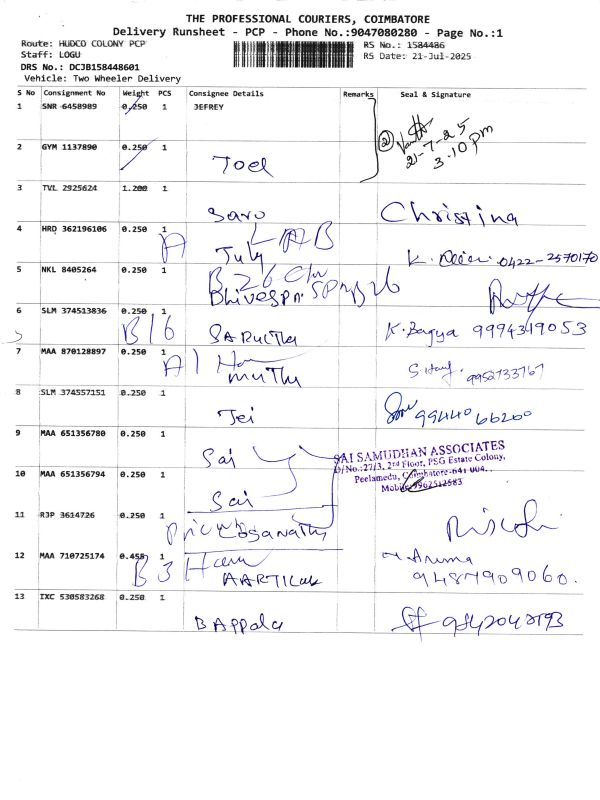 THE PROFESSIONAL COURIERS, COIMBATORE
Delivery Runsheet - PCP - Phone No.:9047080280 - Page No.:1
Route: HUDCO COLONY PCP
RS No.: 1584486
Staff: LOGU
RS Date: 21-Jul-2025
DRS No.: DCJB158448601
Vehicle: Two Wheeler Delivery
S No Consignment No Weight PCS Consignee Details Remarks Seal & Signature
1 SNR 6458989 0.250 1 JEFREY
2 GYM 1137890 0.250 1 Joel
② 21-7-25
3.10 pm
3 TVL 2925624 1.200 1 Saro Christina
4 HRD 362196106 0.250 1 A July LAB K. 0422-2570170
5 NKL 8405264 0.250 1 B 26
6 SLM 374513836 0.250 1 B16 K. Bagya 9994349053
7 MAA 870128897 0.250 1 A1 Muthu 9952733767
8 SLM 374557151 0.250 1 Jei 99440 66200
9 MAA 651356780 0.250 1 Sai
SAI SAMUDHAN ASSOCIATES
D/No.:27/3, 2nd Floor, PSG Estate Colony,
Peelamedu, Coimbatore-641 004.
Mobile:9962512583
10 MAA 651356794 0.250 1 Sai
11 RJP 3614726 0.250 1
12 MAA 710725174 0.455 1 B3 Aruna
9487909060.
13 IXC 530583268 0.250 1 B Appala